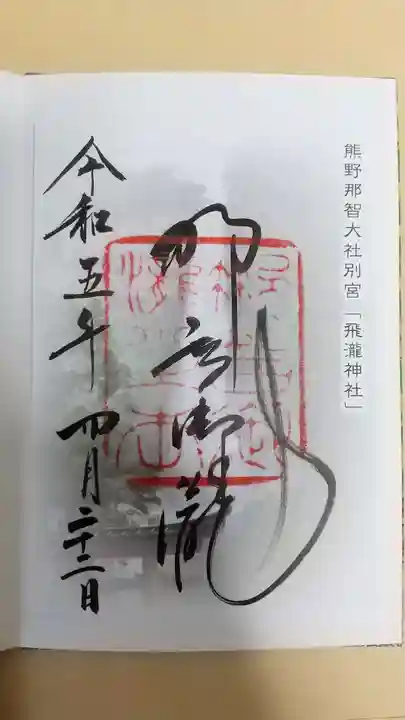 熊野那智大社別宮「飛瀧神社」
那智御瀧
令和五年 四月二十二日